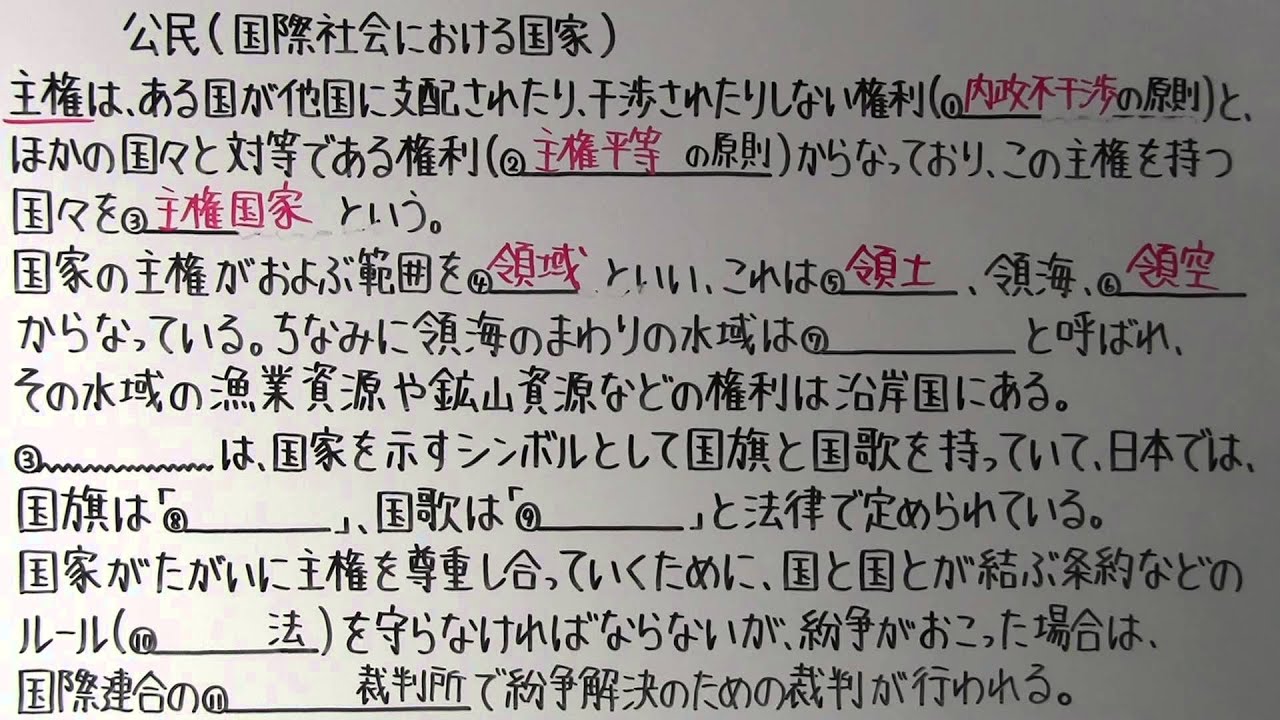 公民(国際社会における国家)
主権は、ある国が他国に支配されたり、干渉されたりしない権利(①内政不干渉の原則)と、
ほかの国々と対等である権利(②主権平等の原則)からなっており、この主権を持つ
国々を③主権国家という。
国家の主権がおよぶ範囲を④領域といい、これは⑤領土、領海、⑥領空
からなっている。ちなみに領海のまわりの水域は⑦と呼ばれ、
その水域の漁業資源や鉱山資源などの権利は沿岸国にある。
③は、国家を示すシンボルとして国旗と国歌を持っていて、日本では、
国旗は「⑧」、国歌は「⑨」と法律で定められている。
国家がたがいに主権を尊重し合っていくために、国と国とが結ぶ条約などの
ルール(⑩ 法)を守らなければならないが、紛争がおこった場合は、
国際連合の⑪ 裁判所で紛争解決のための裁判が行われる。